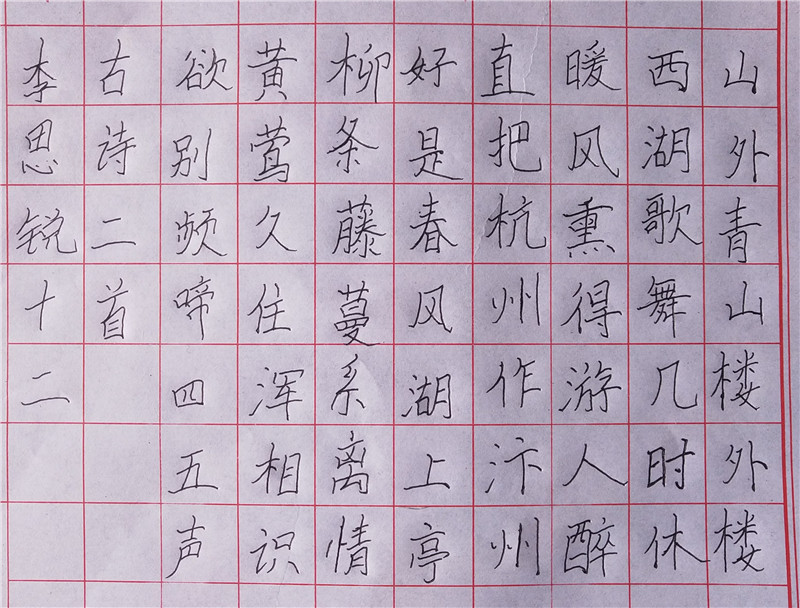 山外青山楼外楼
西湖歌舞几时休
暖风熏得游人醉
直把杭州作汴州
好是春风湖上亭
柳条藤蔓系离情
黄莺久住浑相识
欲别频啼四五声
古诗二首
李思锐十二